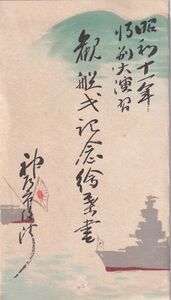 昭和十一年
特別大演習
観艦式記念絵葉書
神戸市役所